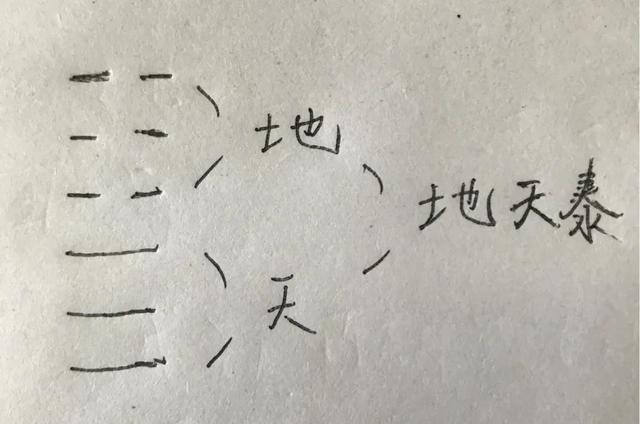 地
地天泰
天